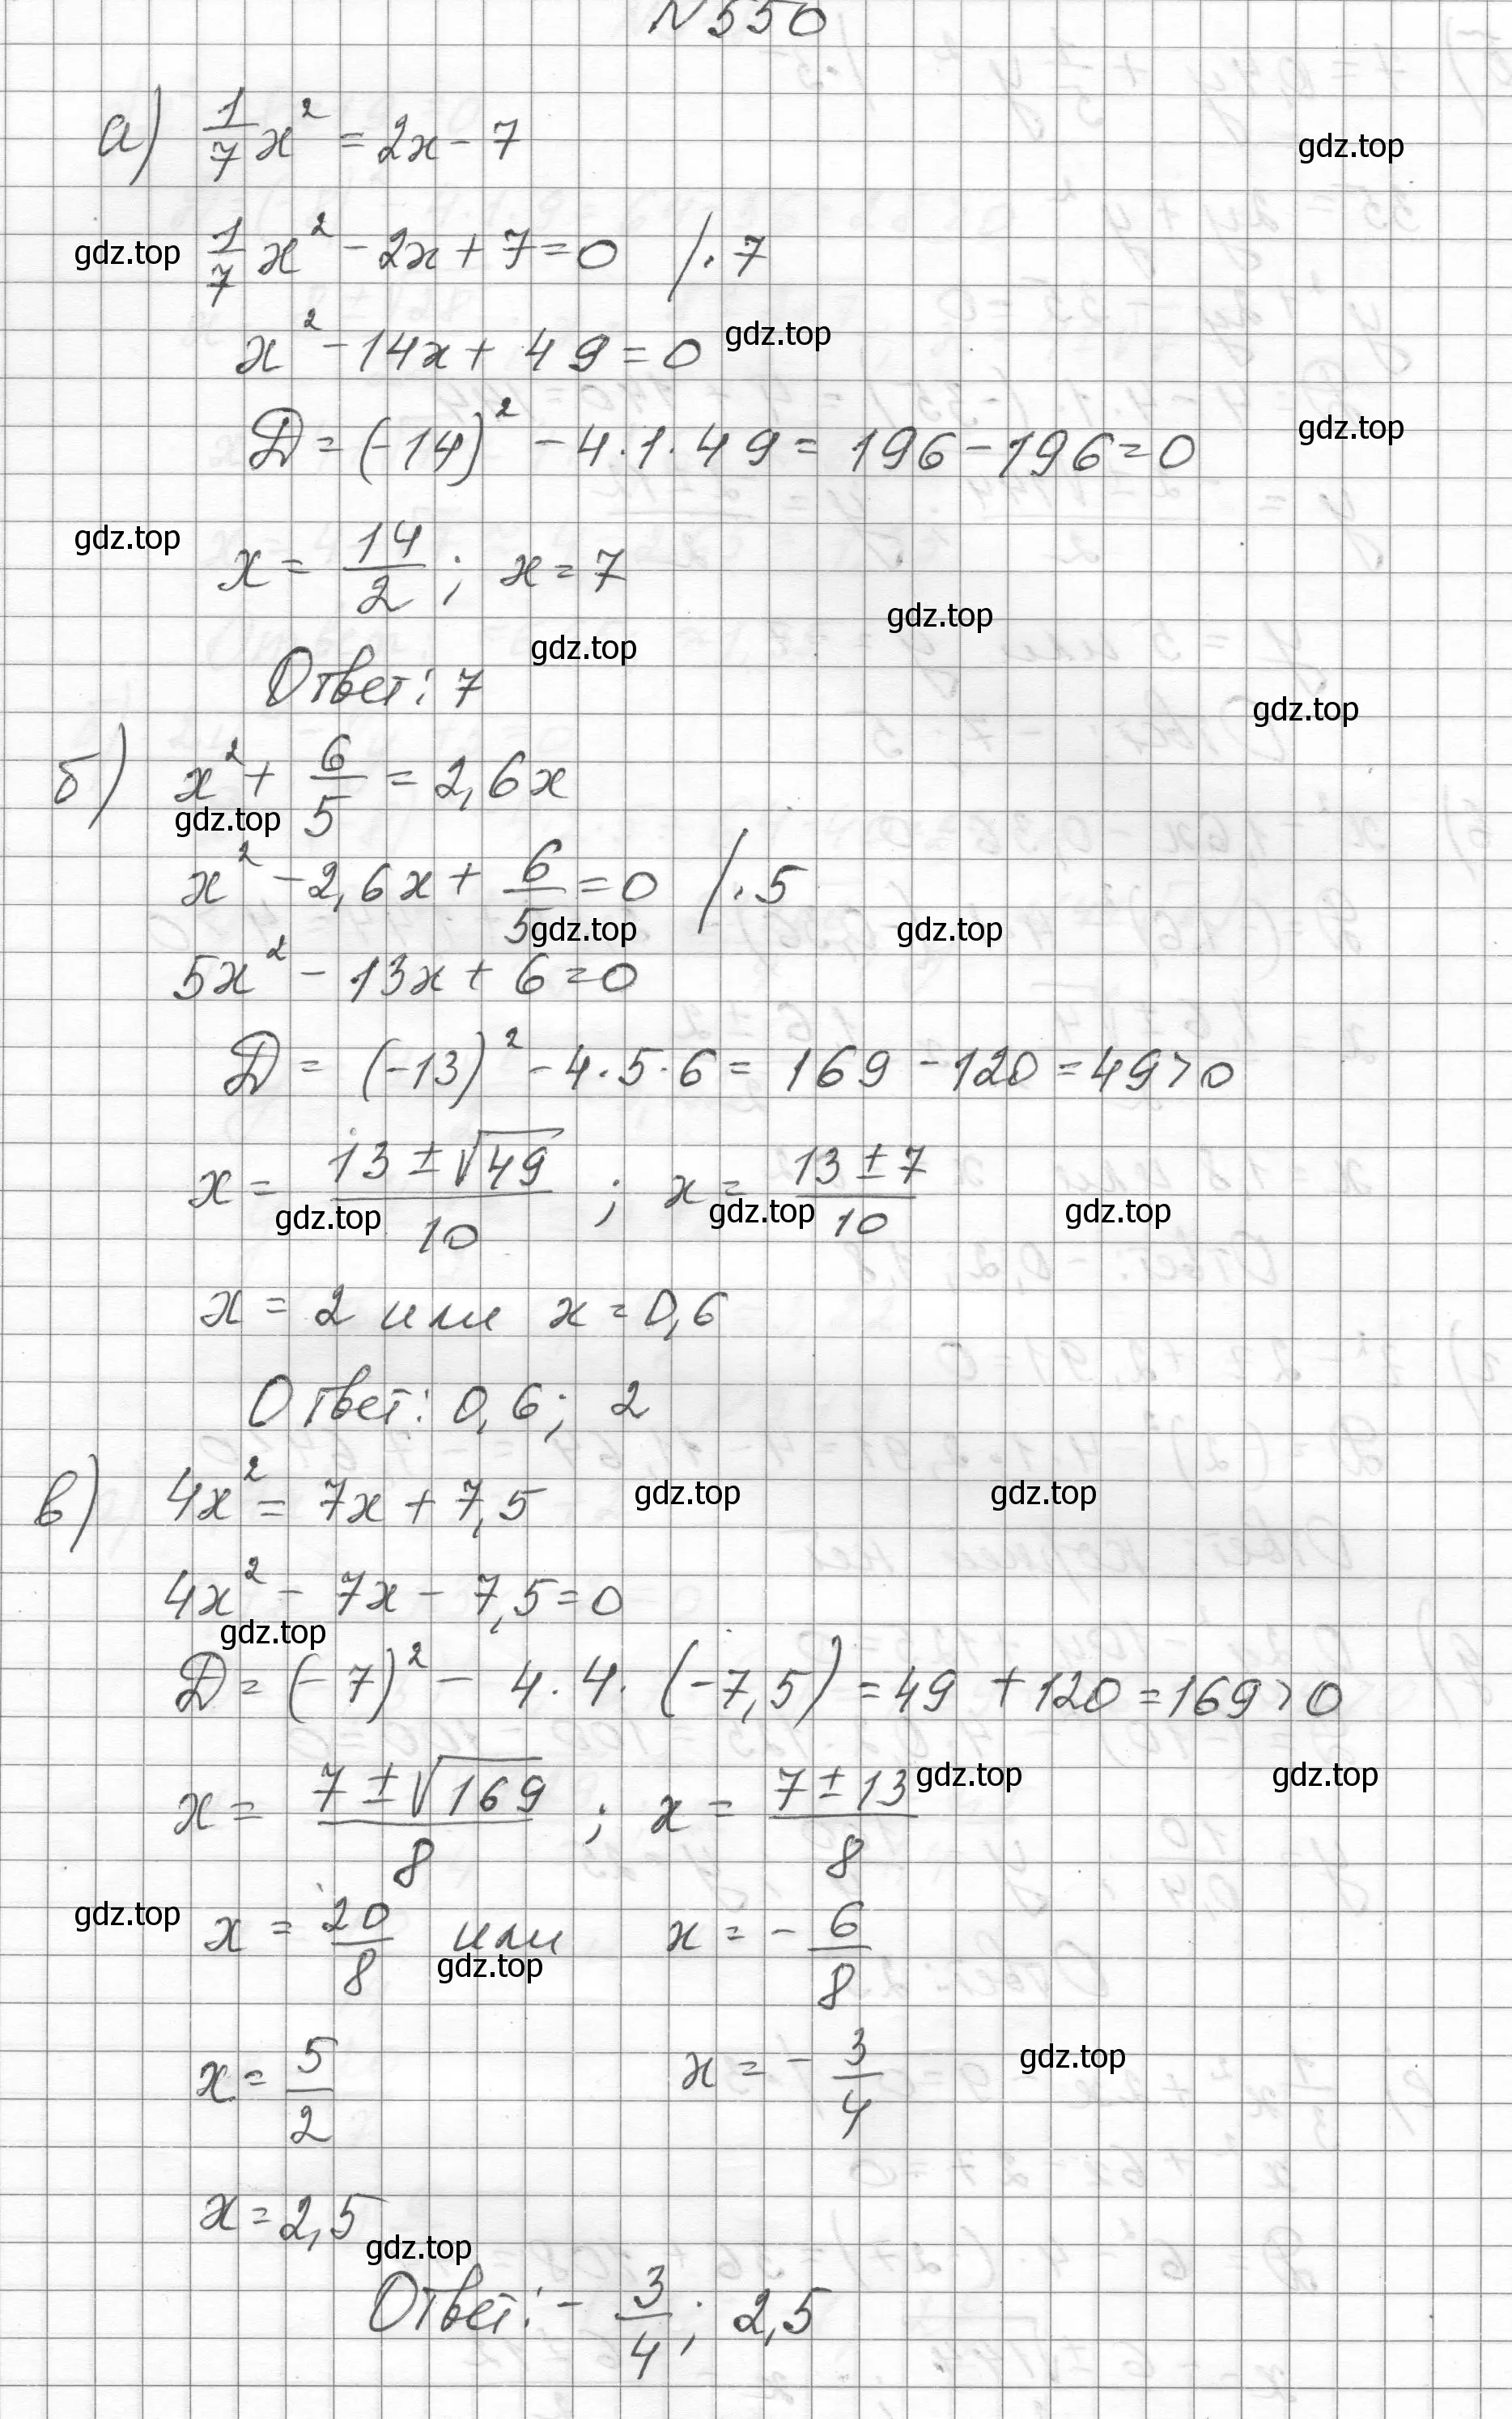 N 550
а) 1/7 x² = 2x - 7
gdz.top
gdz.top 1/7 x² - 2x + 7 = 0 /·7
x² - 14x + 49 = 0 gdz.top
D = (-14)² - 4·1·49 = 196 - 196 = 0 gdz.top
gdz.top x = 14/2 ; x = 7
gdz.top
Ответ: 7 gdz.top
gdz.top
б) x² + 6/5 = 2,6x
gdz.top
x² - 2,6x + 6/5 = 0 /·5
gdz.top gdz.top
5x² - 13x + 6 = 0
D = (-13)² - 4·5·6 = 169 - 120 = 49 > 0
x = (13 ± √49)/10 ; x = (13 ± 7)/10
gdz.top gdz.top gdz.top
x = 2 или x = 0,6
Ответ: 0,6; 2
в) 4x² = 7x + 7,5 gdz.top gdz.top
4x² - 7x - 7,5 = 0
gdz.top
D = (-7)² - 4·4·(-7,5) = 49 + 120 = 169 > 0
x = (7 ± √169)/8 ; x = (7 ± 13)/8 gdz.top gdz.top
gdz.top x = 20/8 или x = - 6/8
gdz.top
x = 5/2 x = - 3/4 gdz.top
x = 2,5
gdz.top
Ответ: - 3/4; 2,5